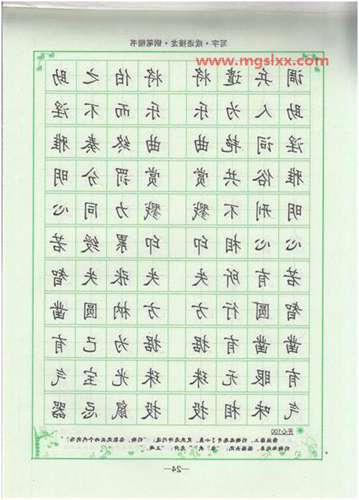 写字·成语接龙·钢笔楷书
www.mgslxx.com
调兵遣将 将伯之助
助人为乐 乐而不淫
淫词艳曲 曲终奏雅
雅俗共赏 赏罚分明
明刑不戮 戮力同心
心心相印 印累绶若
若有所失 失张失智
智圆行方 方枘圆凿
凿凿有据 据为己有
有眼无珠 珠光宝气
气味相投 投鼠忌器
开心100
—24—